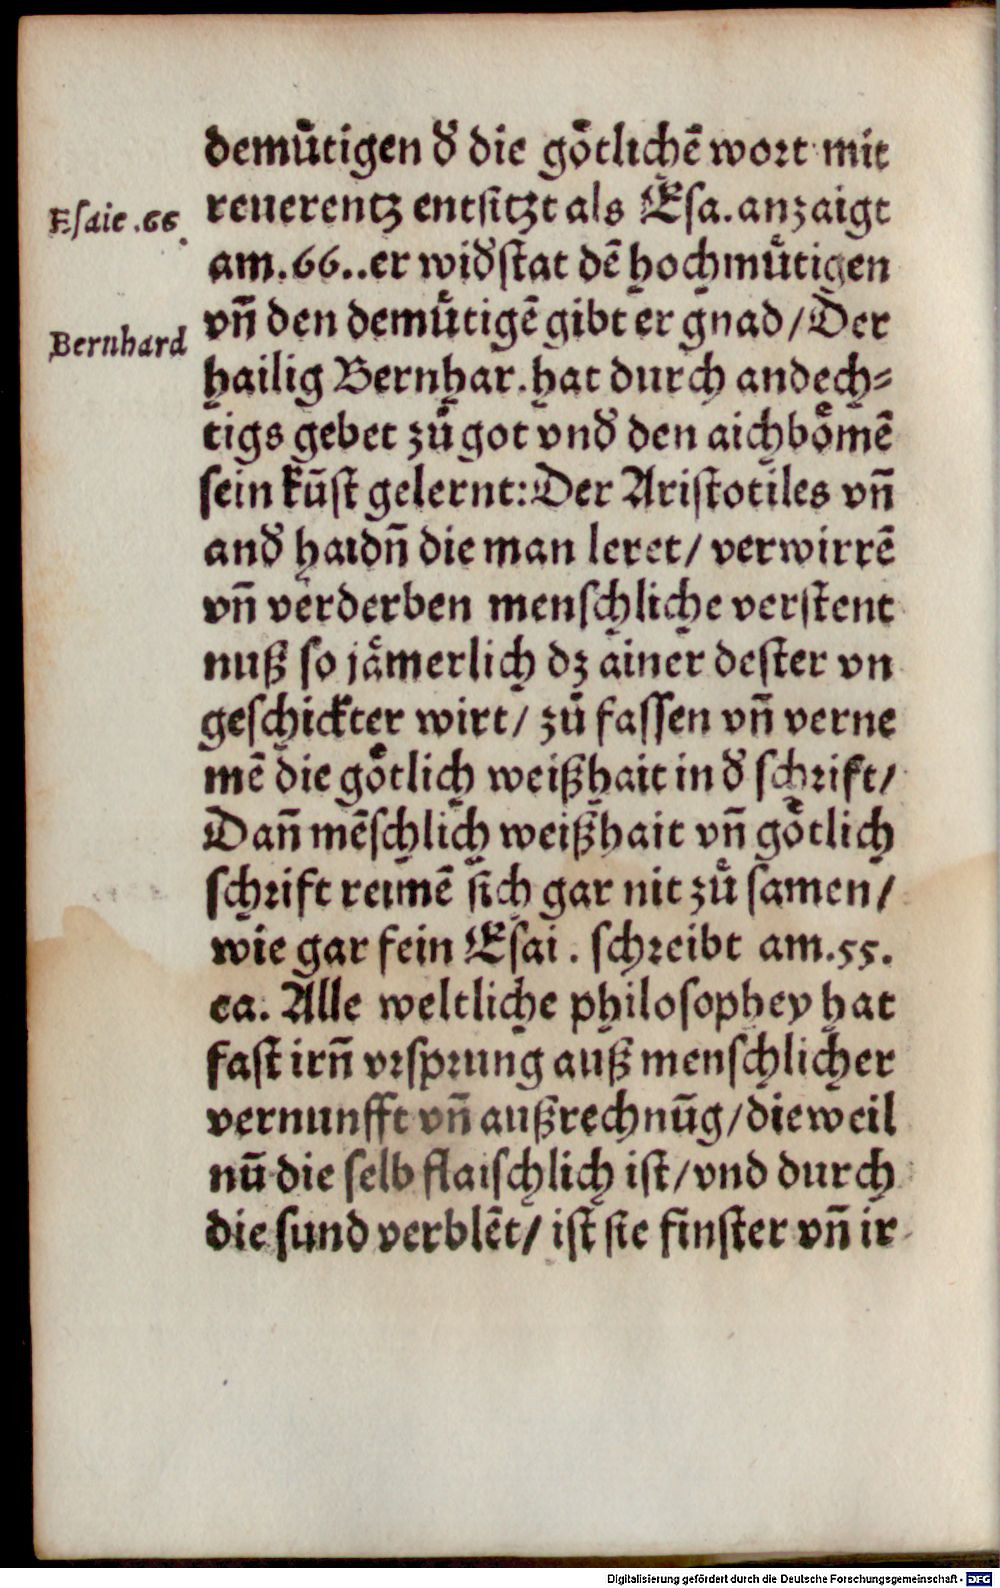 demuͤtigen đ die goͤtlichē wort mit
Esaie .66.
reuerentz entsitzt als Esa. anzaigt
am.66..er wiđstat dē hochmuͤtigen
vn̄ den demuͤtigē gibt er gnad/Der
Bernhard
hailig Bernhar. hat durch andech⸗
tigs gebet zuͦ got vnđ den aichboͤmē
sein kūst gelernt: Der Aristotiles vn̄
anđ haidn̄ die man leret/ verwirrē
vn̄ verderben menschliche verstent
nuß so jaͤmerlich dz ainer dester vn
geschickter wirt/ zuͦ fassen vn̄ verne
mē die goͤtlich weißhait in đ schrift/
Dan̄ mēschlich weißhait vn̄ goͤtlich
schrift reimē sich gar nit zuͦ samen/
wie gar fein Esai . schreibt am.55.
ca. Alle weltliche philosophey hat
fast irn̄ vrsprung auß menschlicher
vernunfft vn̄ außrechnūg/dieweil
nū die selb flaischlich ist/vnd durch
die sund verblēt/ ist sie finster vn̄ ir
Digitalisierung gefördert durch die Deutsche Forschungsgemeinschaft - DFG